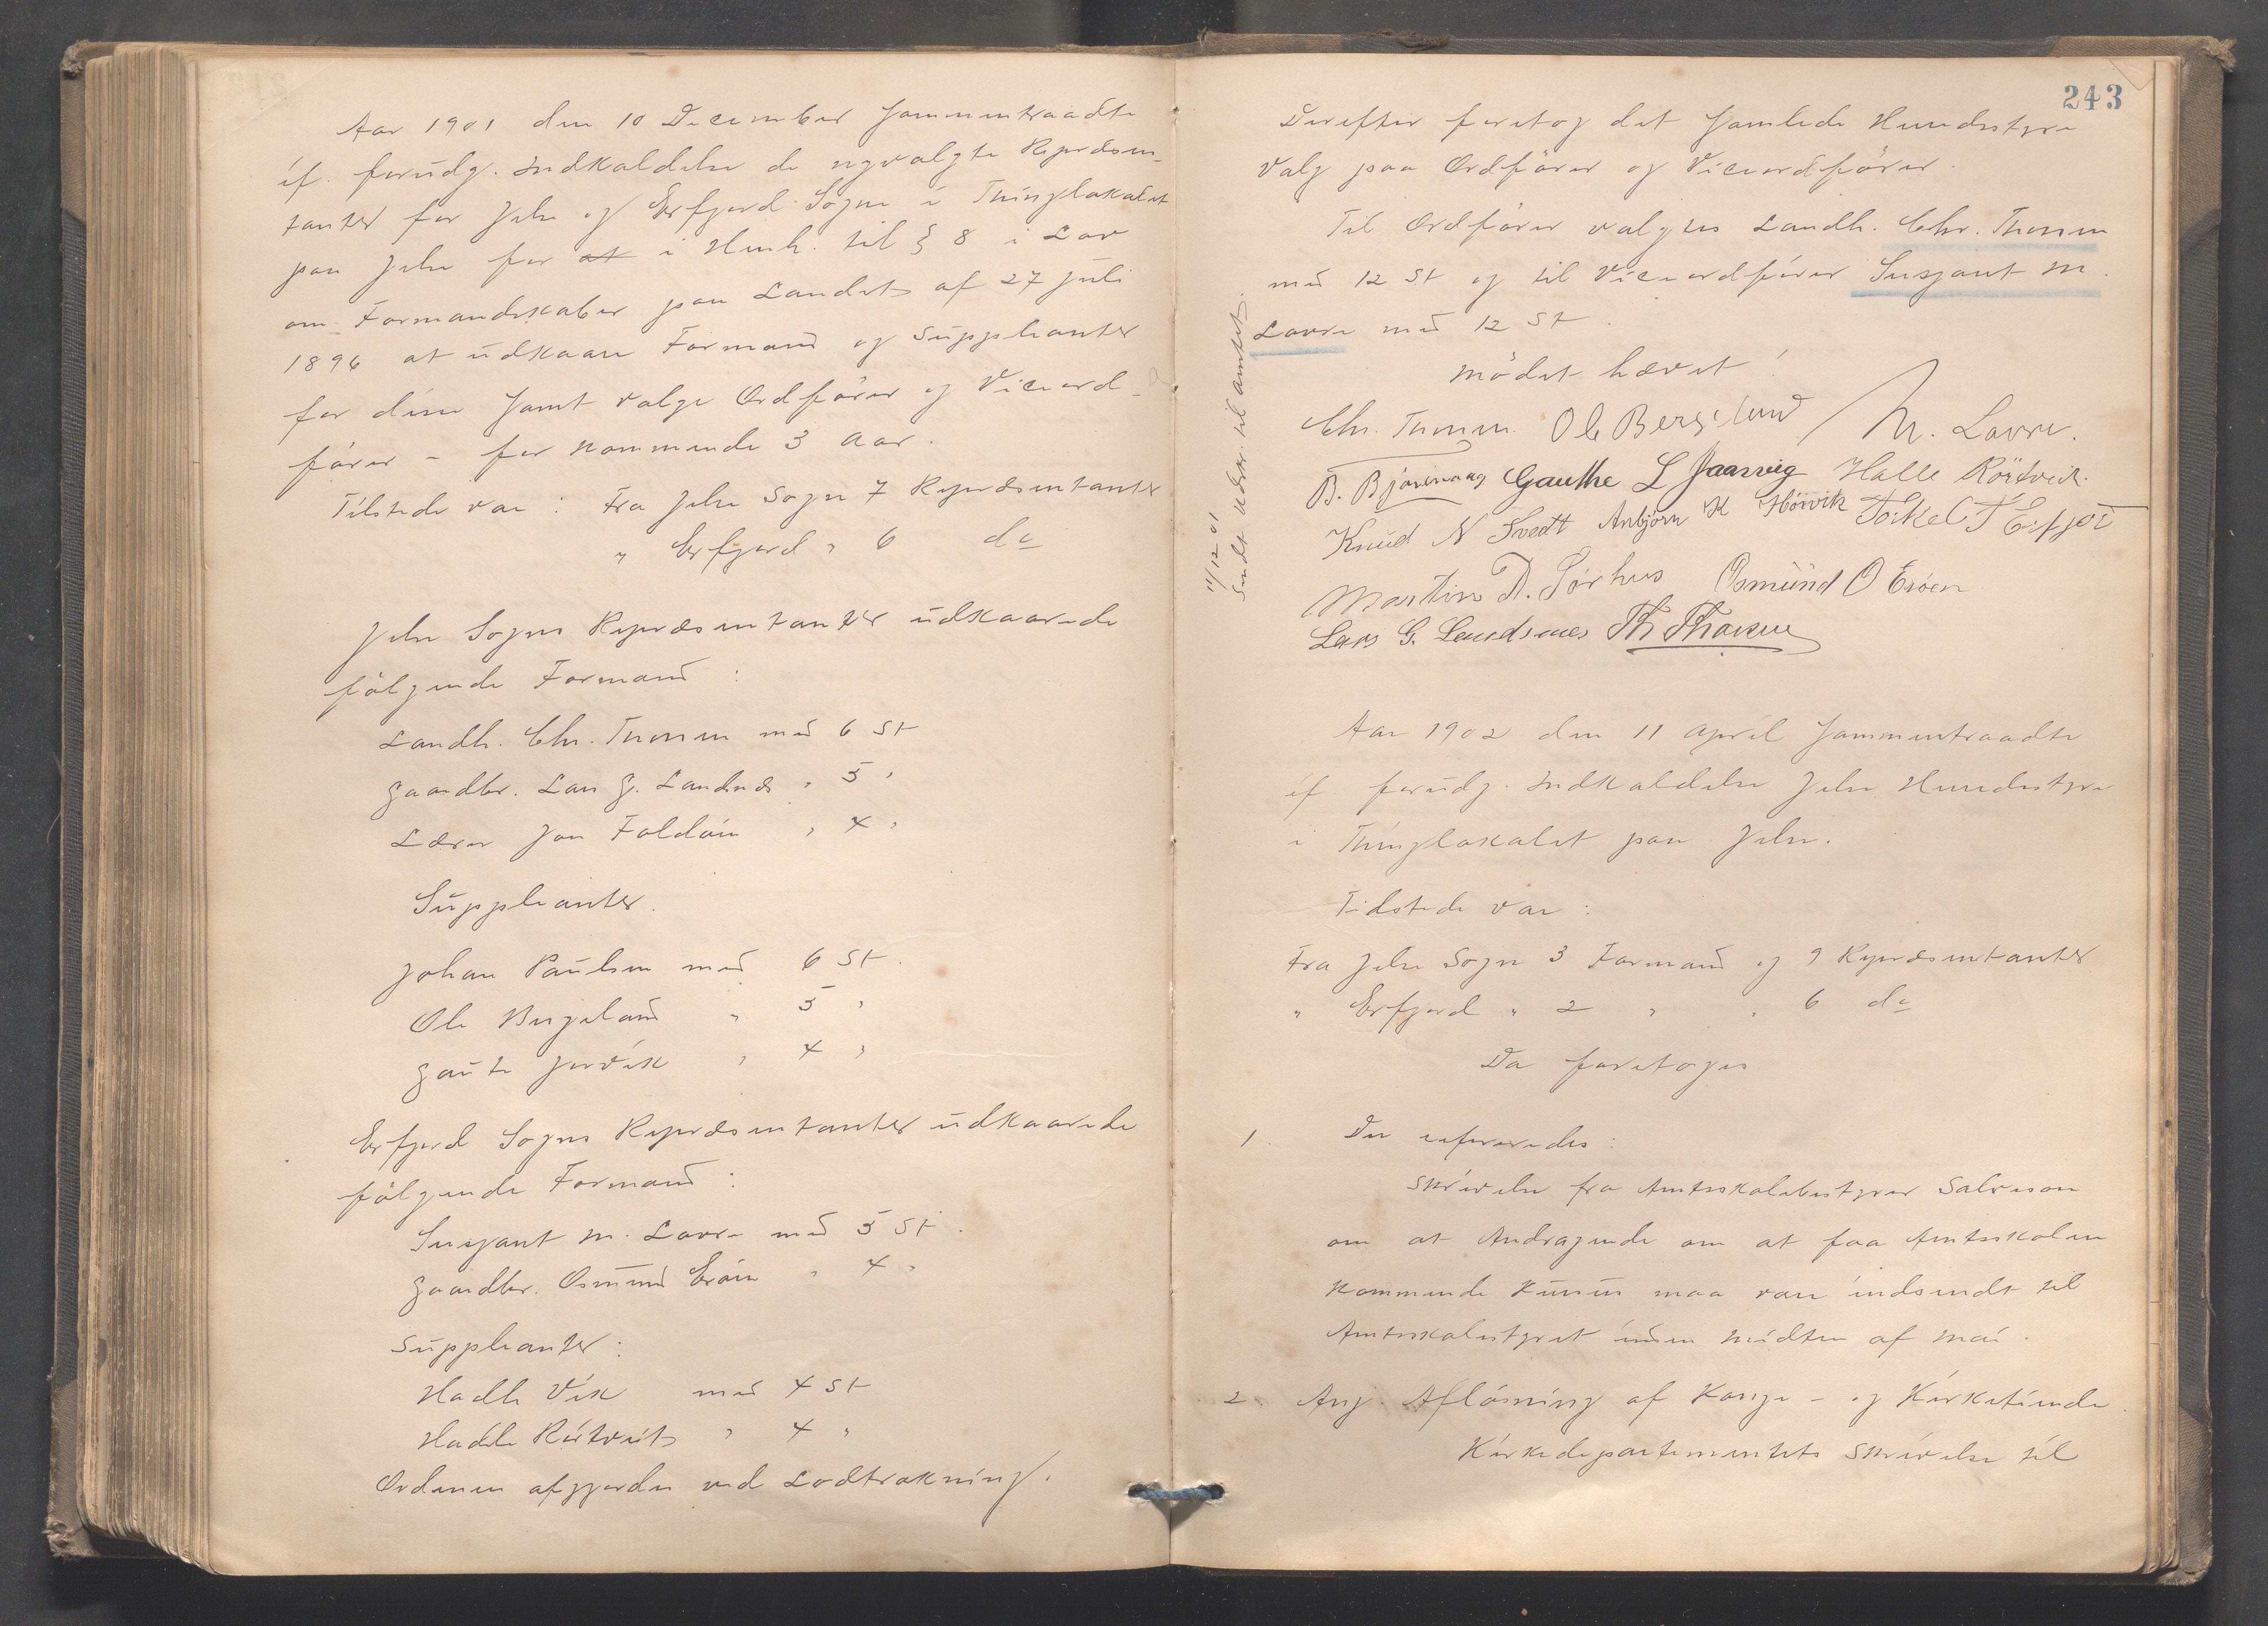 Aar 1901 den 10 December sammentraadte
if. forudg. Indkaldelse de nyvalgte Repræsen-
tanter for Jelse og Erfjord Sogne i Thinglokalet
paa Jelse for at i Henh. til § 8 i Lov
om Formandskaber paa Landet af 27 Juli
1896 at udkaare Formænd og Supplianter
for disse samt valge Ordförer og Viceord-
förer – for kommende 3 Aar.
Tilstede var: Fra Jelse Sogn 7 Repræsentanter
" Erfjord " 6 do
Jelse Sogns Repræsentanter udkaarede
fölgende Formænd:
Landh. Chr. Thorsen med 6 St
Gaardbr. Lars G. Landsnæs " 5 "
Lærer Jon Foldöin " 4 "
Supplianter.
Johan Paulsen med 6 St.
Ole Bergeland " 5 "
Gaute Jorvik " 4 "
Erfjord Sogns Repræsentanter udkaarede
fölgende Formænd:
Sersjant M. Lovra med 5 St.
Gaardbr. Osmund Eröen " 4 "
Supplianter:
Hadle Vik med 4 St
Hadle Rörtveit " 4 "
Ordenen afgjordes ved Lodtrækning.
243
Derefter foretog det samlede Herredsstyre
Valg paa Ordförer og Viceordförer.
Til Ordförer valgtes Landh. Chr. Thorsen
med 12 St og til Viceordförer Sersjant M.
Lovra med 12 St.
Mödet hævet!
Chr. Thorsen. Ole Bergelund M. Lovra.
B. Bjönevaag Gauthe L Jaarvig Halle Rörtveit.
Knud N Tvedt Anbjörn K Hövik Torkel T Erfjor
Martin D. Sørhus Osmund O Erøen
Lars G. Landsnæs Th Thorsen
11/12 01
Sendt Udskr. til Amtet.
Aar 1902 den 11 April sammentraadte
if. forudg. Indkaldelse Jelse Herredsstyre
i Thinglokalet paa Jelse.
Tilstede var:
Fra Jelse Sogn 3 Formænd og 9 Repræsentanter
" Erfjord " 2 " " 6 do
Da foretoges
1. Der refereredes:
Skrivelse fra Amtsskolebestyrer Salveson
om at Andragende om at faa Amtsskolen
kommende Kursus maa være indsendt til
Amtsskolestyret inden Midten af Mai.
2. Ang. Aflösning af Konge- og Kirketiende.
Kirkedepartementets Skrivelse til